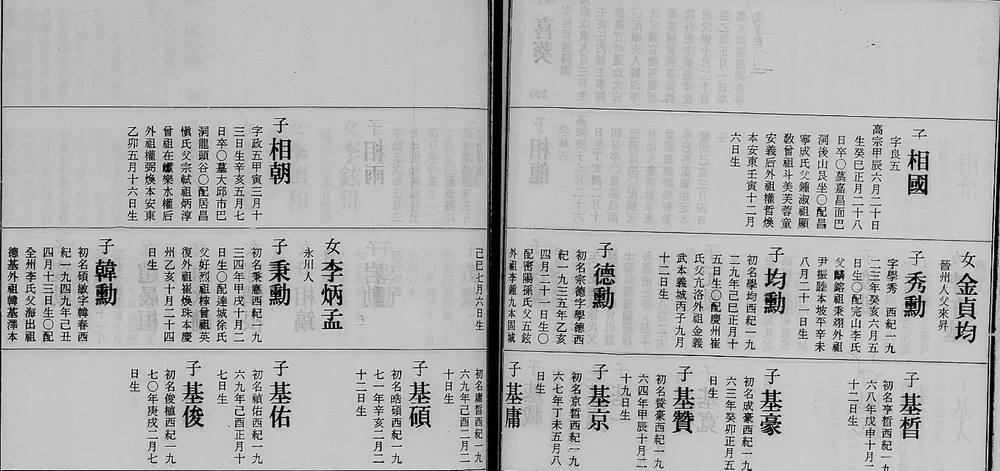 子
相國
字良五
高宗甲辰六月二十日
生癸巳正月二十八
日卒○墓嘉昌面巴
洞後山艮坐○配昌
寧成氏父鍾淑祖顯
教曾祖斗美芙蓉童
安義后外祖權哲煥
本安東壬寅十二月
六日生
女
金貞均
晉州人父來昇
子
秀勳
字學秀 西紀一九
二三年癸亥六月五
日生○配完山李氏
父麟鎔祖秉翊外祖
尹振睦本坡平辛未
八月二十一日生
子
均勳
初名學均字學西紀一
九二九年己巳正月十
五日生○配慶州崔
氏父亢洛外祖金義
武本義城丙子九月
十二日生
子
德勳
初名宗德字學德西
紀一九三五年乙亥
四月二十一日生○
配密陽孫氏父五鉉
外祖李鍾九本固城
己巳七月六日生
子
基晳
初名亨晳西紀一九
六八年戊申十月一
十二日生
子
基豪
初名成豪西紀一九
六三年癸卯正月五
日生
子
基贊
初名贊豪西紀一九
六四年甲辰十二月
十九日生
子
基京
初名京晳西紀一九
六七年丁未五月八
日生
子
基庸
初名庸晳西紀一九
六九年己酉二月二
十日生
子
相朝
字政五甲寅三月十
三日生辛亥五月七
日卒○墓大邱市巴
洞龍頭谷○配居昌
愼氏父宗軾祖炳淳
曾祖在 樂水權后
外祖權弼煥本安東
乙卯五月十六日生
女
李炳孟
永川人
子
秉勳
初名秉憲西紀一九
三四年甲戌十月二
日生○配達城徐氏
父好烈祖 曾祖英
復外祖崔煥珠本慶
州乙亥十月二十四
日生
子
韓勳
初名碩敏字韓春西
紀一九四九年己丑
四月十三日生○配
全州李氏父海出祖
德基外祖韓基澤本
子
基碩
初名晧碩西紀一九
七一年辛亥二月二
十二日生
子
基佑
初名禎佑西紀一九
六九年己酉正月十
七日生
子
基俊
初名俊植西紀一九
七〇年庚戌二月七
日生